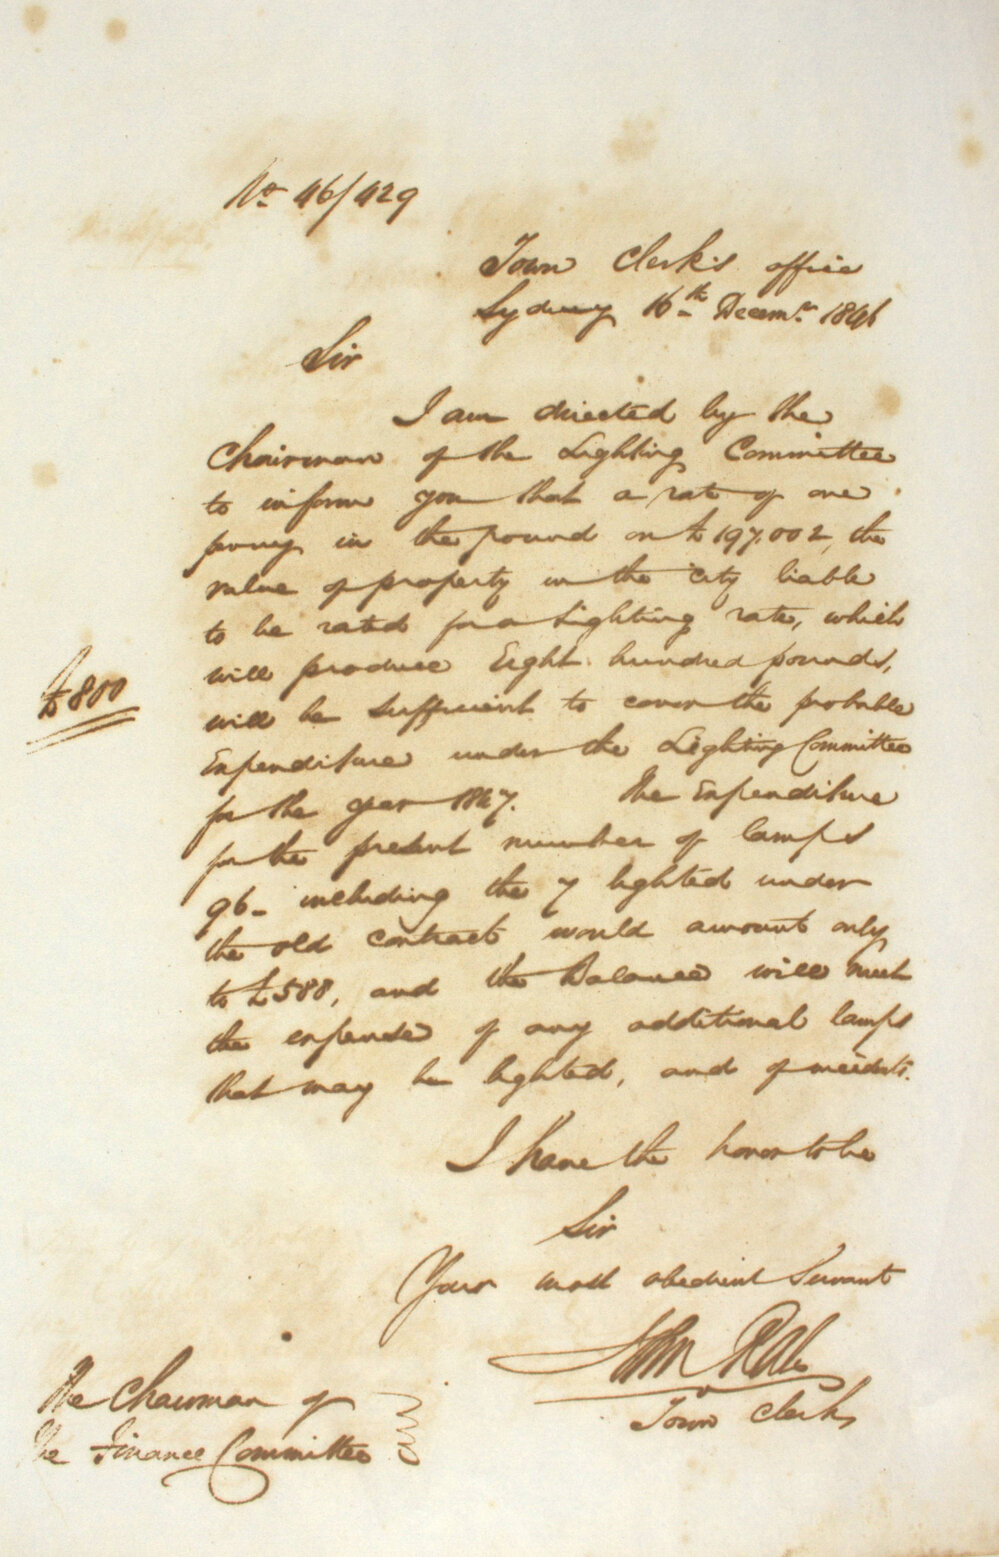 No 46/429
Town Clerk's office
Sydney 16th Decemr 1846
Sir
I am directed by the
Chairman of the Lighting Committee
to inform you that a rate of one
penny in the pound on £197.002, the
value of property in the city liable
to be rated for a Lighting rate, which
will produce Eight hundred pounds,
£800
will be sufficient to cover the probable
Expenditure under the Lighting Committee
for the year 1847. The Expenditure
for the present number of lamps
96 - including the 7 lighted under
the old contract would amount only
to £588, and the Balance will meet
the expense of any additional lamps
that may be lighted, and of incidents.
I have the honor to be
Sir
Your most obedient Servant
John Rae
Town Clerk
The Chairman of
The Finance Committee